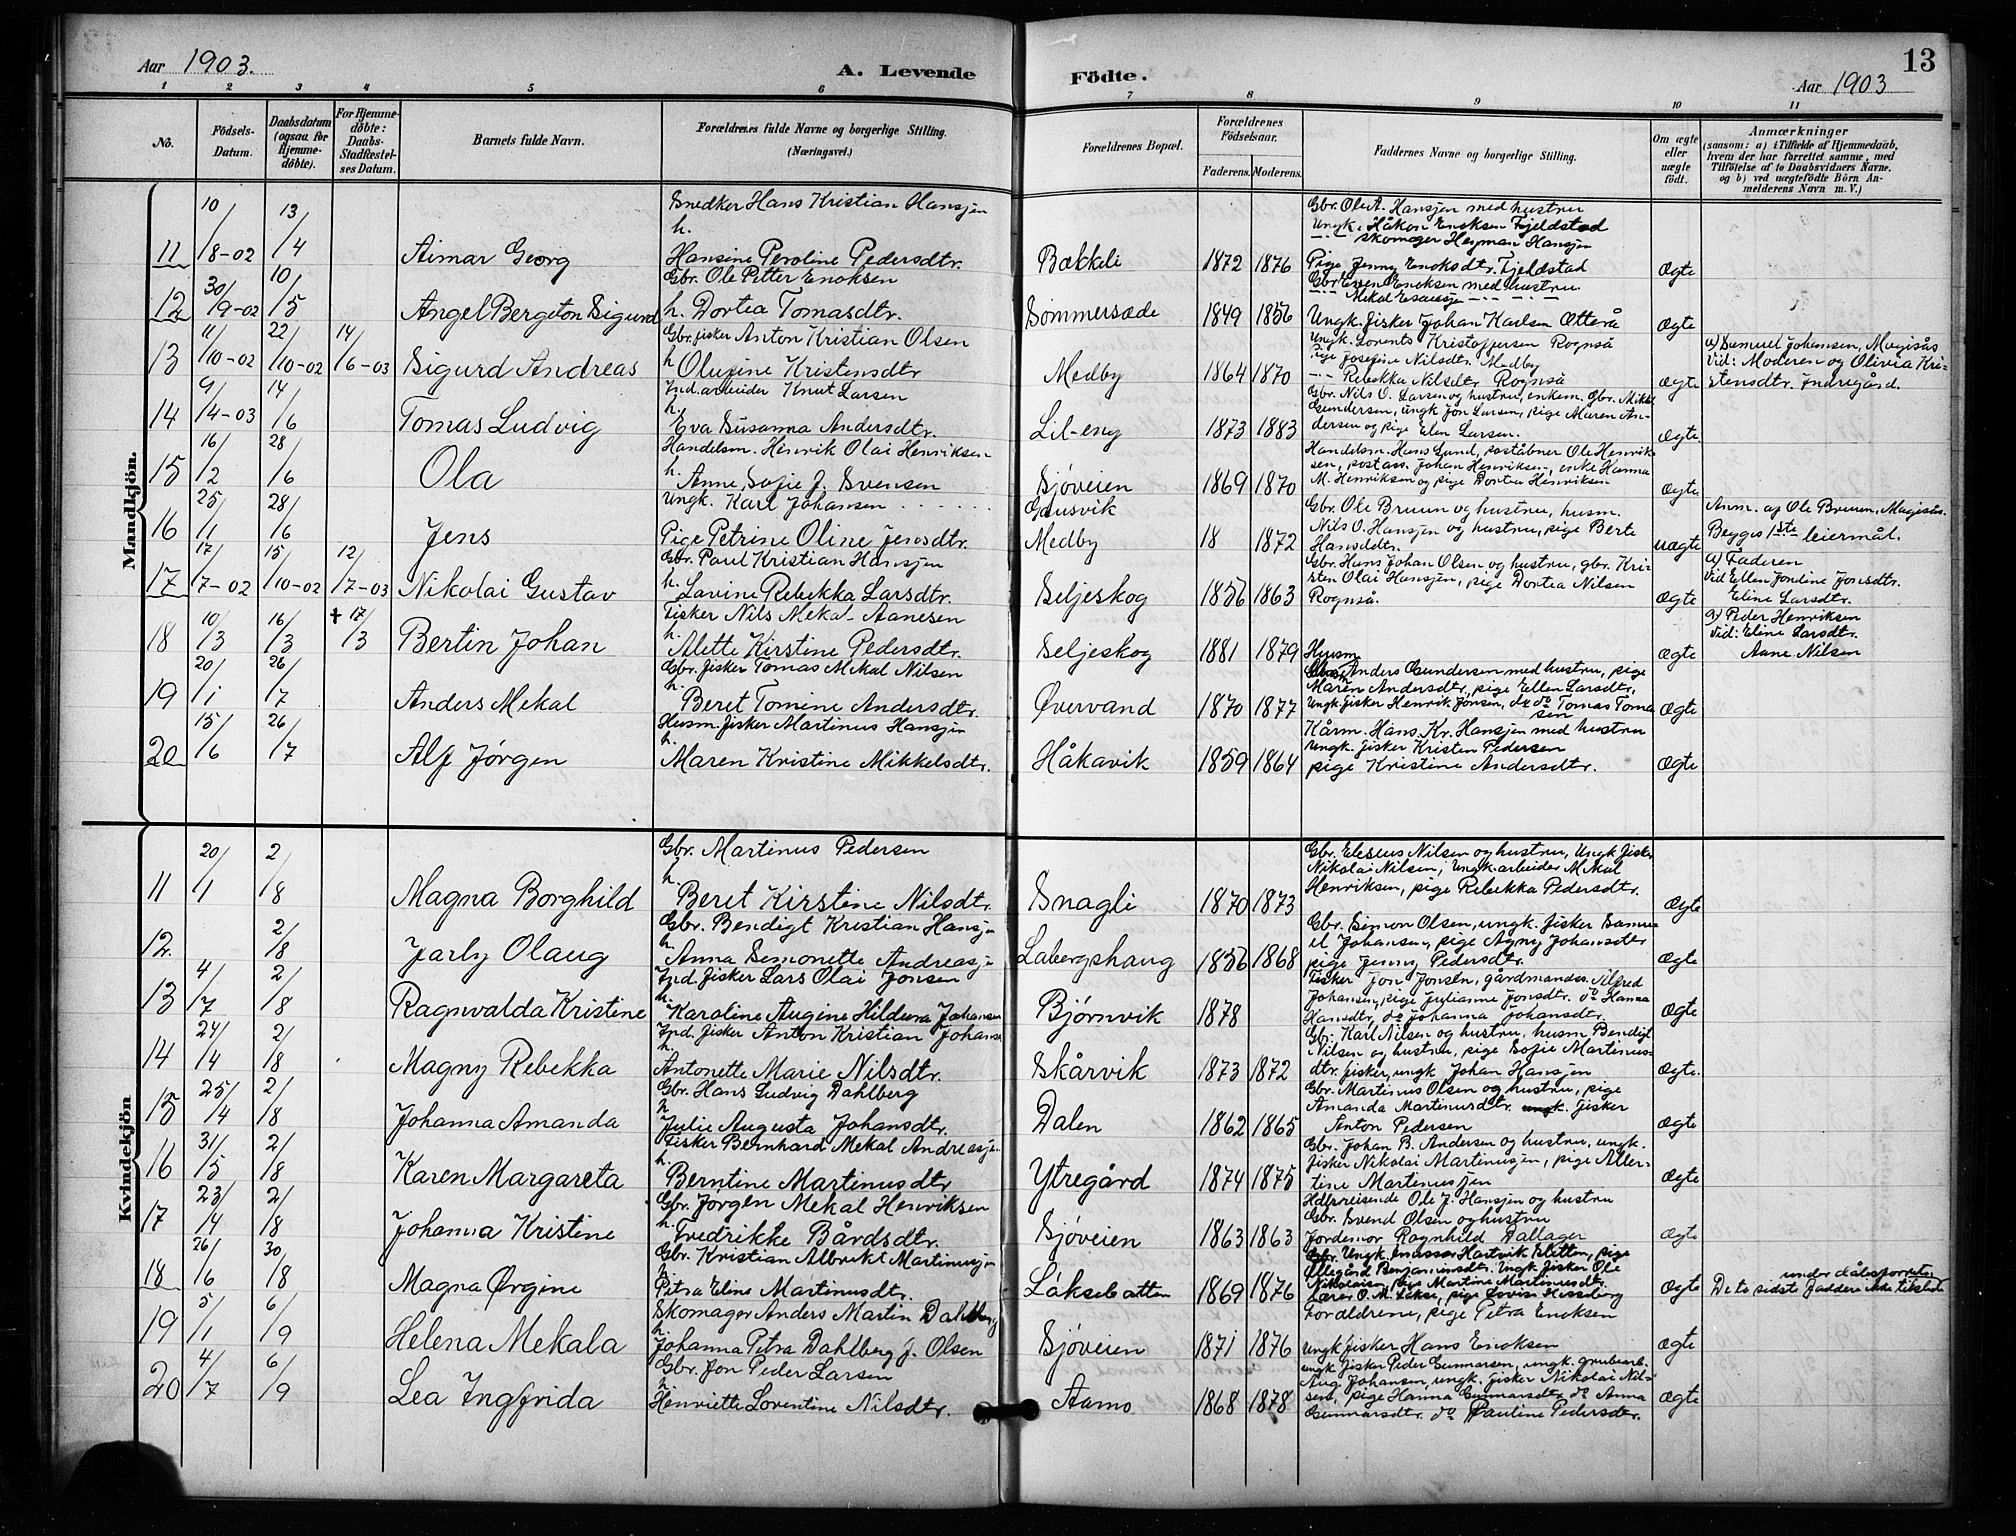 Aar 1903. A. Levende Födte. Aar 1903 13
1 2 3 4 5 6 7 8 9 10 11
No. Födsels-Datum. Daabsdatum (ogsaa for Hjemmedöbte). For Hjemmedöbte: Daabs-Stadfæstelses Datum. Barnets fulde Navn. Forældrenes fulde Navne og borgerlige Stilling. (Næringsvei.) Forældrenes Bopæl. Forældrenes Födselsaar. Faderens. Moderens. Faddernes Navne og borgerlige Stilling. Om ægte eller uægte födt. Anmærkninger (saasom: a) i Tilfælde af Hjemmedaab, hvem der har forrettet samme, med Tilföielse af to Daabsvidners Navne, og b) ved uægtefödte Börn Anmelderens Navn m. V.)
Mandkjön.
11 10/8-02 13/4 Aimar Georg Snedker Hans Kristian Hansen h. Hansine Peroline Pedersdtr. Bækkeli 1872 1876 Gbr. Ole A. Hansen med hustru Ungk. Håkon Enoksen Fjeldstad skomager Heyman Hansen Pige Jenny Enoksdtr. Fjeldstad Ægte
12 30/9-02 10/5 Angel Bergeton Sigurd Gbr. Ole Petter Enoksen h. Dortea Tomasdtr. Sommersæde 1849 1856 Gbr. Even Enoksen med hustru Mekal Esaiassen Ungk. fisker Johan Karlsen Otterå Ægte
13 11/10-02 22/10-02 14/6-03 Sigurd Andreas Gbr. fisker Anton Kristian Olsen h Olufine Kristensdtr Medby 1864 1870 Ungk. Lorents Kristoffersen Rognså Pige Josefine Nilsdtr. Medby Rebekka Nilsdtr Rognså Ægte a) Samuel Johansen, Magisås Vid: Moderen og Olivia Kristensdtr. Indregård.
14 9/4-03 14/6 Tomas Ludvig Ind. arbeider Knut Larsen h. Eva Susanna Andersdtr. Lil-eng 1873 1883 Gbr. Nils O. Larsen og hustru, enkem. Gbr. Mikal Gundersen, ungk Jon Larsen, pige Maren Andersen og pige Elen Larsen. Ægte
15 16/2 28/6 Ola Handelsm. Henrik Olai Henriksen h. Anne Sofie J. Svensen Sjøveien 1869 1870 Handelsm. Hans Lund, poståbner Ole Henriksen, postass. Johan Henriksen, enke Hanna M. Henriksen og pige Dortea Henriksen Ægte
16 25/1 28/6 Jens Ungk. Karl Johansen Pige Petrine Oline Jensdtr. Gausvik Medby 18 1872 Gbr. Ole Bruun og hustru, husm. Nils O. Hansen og hustru, pige Berte Hansdtr. uægte Anm. af Ole Bruun, Magisås. Begges 1ste leiermål.
17 17/7-02 15/10-02 12/7-03 Nikolai Gustav Gbr. Paul Kristian Hansen h. Lavine Rebekka Larsdtr. Seljeskog 1856 1863 Gbr. Hans Johan Olsen og hustru, gbr. Kristen Olai Hansen, pige Dortea Nilsen Rognså. Ægte a) Faderen Vid Ellen Jondine Jonsdtr. Eline Larsdtr.
18 10/3 16/3 † 17/3 Bertin Johan Fisker Nils Mekal Aanesen h. Alette Kirstine Pedersdtr. Seljeskog 1881 1879 Ægte a) Peder Henriksen Vid: Eline Larsdtr. Aane Nilsen
19 20/1 26/7 Anders Mekal Gbr. fisker Tomas Mekal Nilsen h. Beret Tomine Andersdtr. Øvervand 1870 1877 Husm. Anders Gundersen med hustru, pige Maren Andersdtr., pige Ellen Larsdtr., Ungk. fisker Henrik Jonsen, do do Tomas Tomasen Ægte
20 15/6 26/7 Alf Jørgen Husm. fisker Martinus Hansen h. Maren Kristine Mikkelsdtr. Håkavik 1859 1864 Kårm. Hans Kr. Hansen med hustru ungk. fisker Kristen Pedersen pige Kristine Andersdtr. Ægte
Kvindekjön
11 20/1 2/8 Magna Borghild Gbr. Martinus Pedersen h Beret Kirstine Nilsdtr. Snagli 1870 1873 Gbr. Eleseus Nilsen og hustru, Ungk fisker Nikolai Nilsen, Ungk. arbeider Mekal Henriksen, pige Rebekka Pedersdtr. Ægte
12. 2/8 Jarly Olaug Gbr. Bendigt Kristian Hansen h. Anna Semonette Andreasen Labergshaug 1856 1868 Gbr. Simon Olsen, ungk. fisker Samuel Johansen, pige Agny Johansdtr pige Jenny Pedersdtr. Ægte
13 4/7 2/8 Ragnvalda Kristine Ind. fisker Lars Olai Jonsen h. Karoline Augine Hildura Johansen Bjørnvik 1878 Fisker Jon Jonsen, gårdmandss. Alfred Johansen, pige Julianne Jonsdtr. do Hanna Hansdtr, do Johanna Johansdtr. Ægte
14 24/4 2/8 Magny Rebekka Ind. fisker Anton Kristian Johansen h. Antonette Marie Nilsdtr. Skårvik 1873 1872 Gbr. Karl Nilsen og hustru, husm Bendigt Nilsen og hustru, pige Sofie Martinusdtr. fisker, ungk Johan Hansen Ægte.
15 25/4 2/8 Johanna Amanda Gbr. Hans Ludvig Dahlberg h Julie Augusta Johansdtr. Dalen 1862 1865 Gbr. Martinus Olsen og hustru, pige Amanda Martinusdtr. ungk. fisker Anton Pedersen Ægte
16 31/5 2/8 Karen Margareta Fisker Bernhard Mekal Andreasen h. Berntine Martinusdtr Ytregård 1874 1875 Gbr. Johan B. Andersen og hustru, ungk. fisker Nikolai Martinusen, pige Albertine Martinusen Ægte
17 23/4 2/8 Johanna Kristine Gbr. Jörgen Mekal Henriksen h. Fredrikke Bårdsdtr. Sjøveien 1863 1863 Hdlsreisende Ole J. Hansen og hustru Gbr. Svend Olsen og hustru Jordemor Ragnhild Dallager Ægte
18 26/6 30/8 Magna Ørgine Gbr. Kristian Albrikt Martinusen h Petra Eline Martinusdtr. Låksebotten 1869 1876 Ungk. Hartvik Sletten, pige Benjaminsdtr. Ungk. fisker Ole Nikolaisen, pige Martine Martinusdtr. Lærer O. M. Lakse, pige Lovise Hesseberg Ægte De to sidste faddere ikke tilstede under dåbsforretn.
19 5/1 6/9 Helena Mekala Skomager Anders Martin Dahlberg h Johanna Petra Dahlberg f. Olsen Sjøveien 1871 1876 Forældrene, pige Petra Enoksen ungk. fisker Hans Enoksen Ægte
20 4/7 6/9 Lea Ingfrida Gbr. Jon Peder Larsen h Henriette Lorentine Nilsdtr. Aamo 1868 1878 ungk. fisker Peder Gunnarsen, ungk. grubearb. Aug Johansen, ungk. fisker Nikolai Nilsen, pige Hanna Gunnarsdtr. do Anna Gunnarsdtr. do Pauline Pedersdtr. Ægte